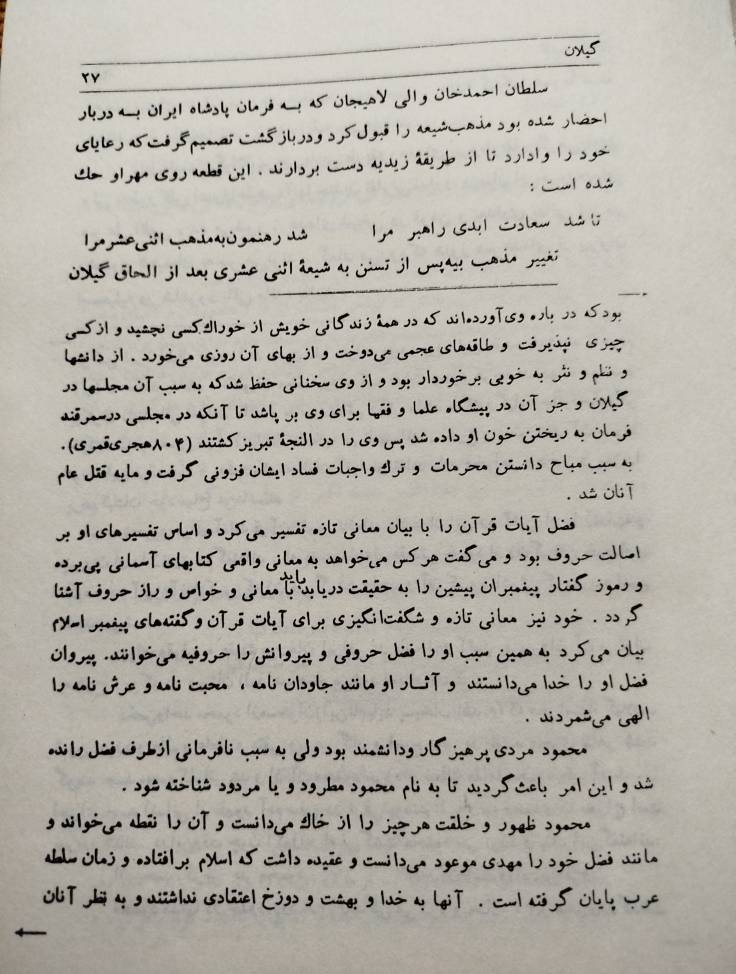 گیلان
۲۷
سلطان احمدخان والی لاهیجان که به فرمان پادشاه ایران به دربار
احضار شده بود مذهب شیعه را قبول کرد و در بازگشت تصمیم گرفت که رعایای
خود را وادارد تا از طریقهٔ زیدیه دست بردارند . این قطعه روی مهر او حك
شده است :
تا شد سعادت ابدی راهبر مرا شد رهنمون به مذهب اثنی عشر مرا
تغییر مذهب بیه‌پس از تسنن به شیعهٔ اثنی عشری بعد از الحاق گیلان
بود که در باره وی آورده‌اند که در همهٔ زندگانی خویش از خوراك کسی نچشید و از کسی
چیزی نپذیرفت و طاقه‌های عجمی می‌دوخت و از بهای آن روزی می‌خورد . از دانشها
و نظم و نثر به خوبی برخوردار بود و از وی سخنانی حفظ شد که به سبب آن مجلسها در
گیلان و جز آن در پیشگاه علما و فقها برای وی بر پاشد تا آنکه در مجلسی در سمرقند
فرمان به ریختن خون او داده شد پس وی را در النجهٔ تبریز کشتند (۸۰۴ هجری قمری).
به سبب مباح دانستن محرمات و ترك واجبات فساد ایشان فزونی گرفت و مایه قتل عام
آنان شد .
فضل آیات قرآن را با بیان معانی تازه تفسیر می‌کرد و اساس تفسیرهای او بر
اصالت حروف بود و می‌گفت هرکس می‌خواهد به معانی واقعی کتابهای آسمانی پی‌برده
و رموز گفتار پیغمبران پیشین را به حقیقت دریابد باید با معانی و خواص و راز حروف آشنا
گردد . خود نیز معانی تازه و شگفت‌انگیزی برای آیات قرآن و گفته‌های پیغمبر اسلام
بیان می‌کرد به همین سبب او را فضل حروفی و پیروانش را حروفیه می‌خوانند. پیروان
فضل او را خدا می‌دانستند و آثار او مانند جاودان نامه ، محبت نامه و عرش نامه را
الهی می‌شمردند .
محمود مردی پرهیزگار ودانشمند بود ولی به سبب نافرمانی ازطرف فضل رانده
شد و این امر باعث گردید تا به نام محمود مطرود و یا مردود شناخته شود .
محمود ظهور و خلقت هرچیز را از خاك می‌دانست و آن را نقطه می‌خواند و
مانند فضل خود را مهدی موعود می‌دانست و عقیده داشت که اسلام برافتاده و زمان سلطه
عرب پایان گرفته است . آنها به خدا و بهشت و دوزخ اعتقادی نداشتند و به نظر آنان